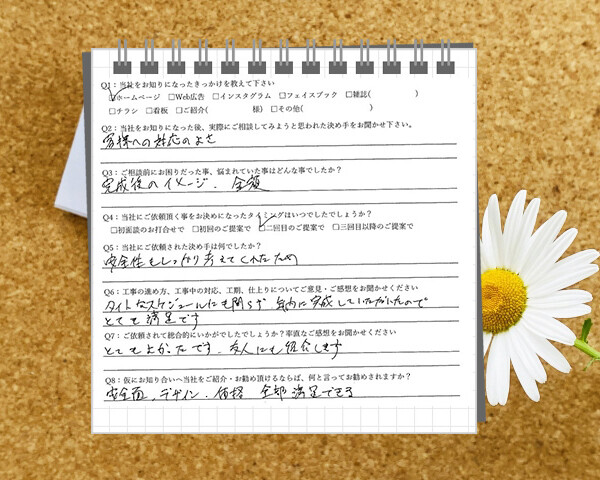 Q1:当社をお知りになったきっかけを教えて下さい
☑ホームページ □Web広告 □インスタグラム □フェイスブック □雑誌( )
□チラシ □看板 □ご紹介( 様) □その他( )
Q2:当社をお知りになった後、実際にご相談してみようと思われた決め手をお聞かせ下さい。
客様への対応のよさ
Q3:ご相談前にお困りだった事、悩まれていた事はどんな事でしたか?
完成後のイメージ. 金額
Q4:当社にご依頼頂く事をお決めになったタイミングはいつでしたでしょうか?
□初面談のお打合せで □初回のご提案で ☑二回目のご提案で □三回目以降のご提案で
Q5:当社にご依頼された決め手は何でしたか?
安全性もしっかり考えてくれたため
Q6:工事の進め方、工事中の対応、工期、仕上りについてご意見・ご感想をお聞かせください
タイトなスケジュールにも関らず 年内に完成していただいたので
とても満足です
Q7:ご依頼されて総合的にいかがでしたでしょうか?率直なご感想をお聞かせください
とてもよかったです. 友人にも紹介します
Q8:仮にお知り合いへ当社をご紹介・お勧め頂けるならば、何と言ってお勧めされますか?
安全面. デザイン. 価格 全部満足できる